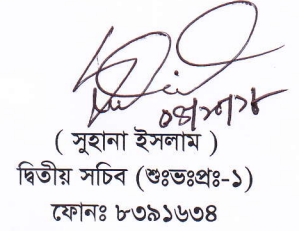 ০৪/১০/১৮
( সুহানা ইসলাম )
দ্বিতীয় সচিব (শুঃভঃপ্রঃ-১)
ফোনঃ ৮৩৯১৬৩৪